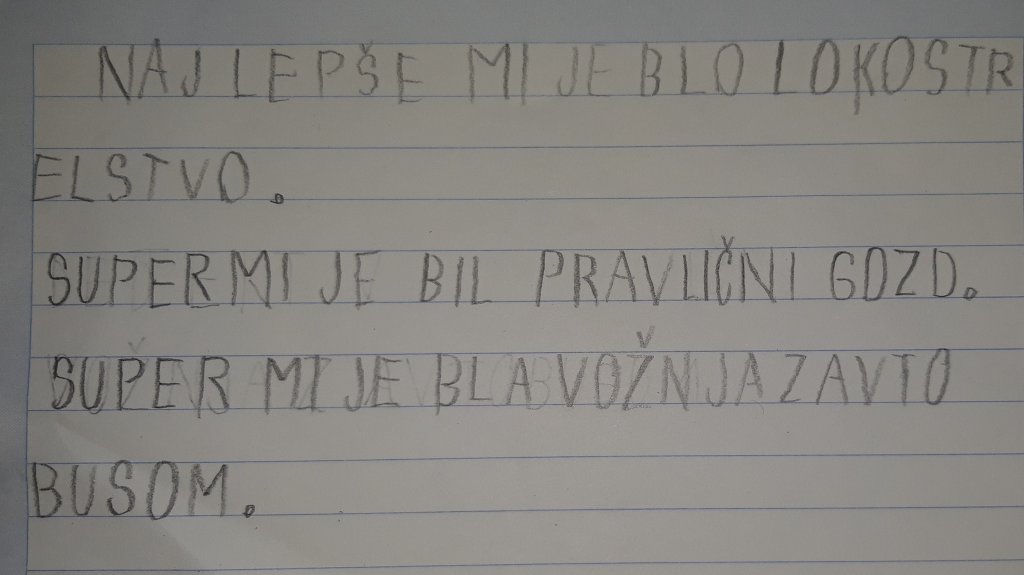 NAJLEPŠE MI JE BLO LOKOSTR
ELSTVO.
SUPER MI JE BIL PRAVLIČNI GOZD.
SUPER MI JE BLA VOŽNJA Z AVTO
BUSOM.